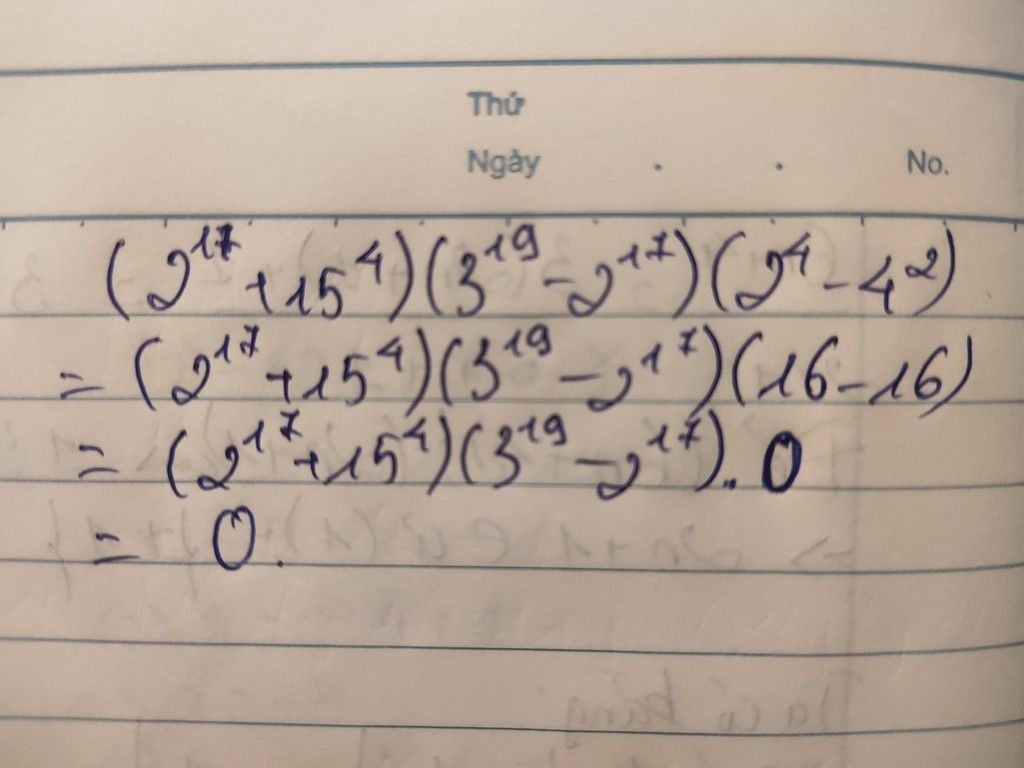 Thứ
Ngày . . No.
(2¹⁷ + 15⁴)(3¹⁹ - 2¹⁷)(2⁴ - 4²)
= (2¹⁷ + 15⁴)(3¹⁹ - 2¹⁷)(16 - 16)
= (2¹⁷ + 15⁴)(3¹⁹ - 2¹⁷). 0
= 0.